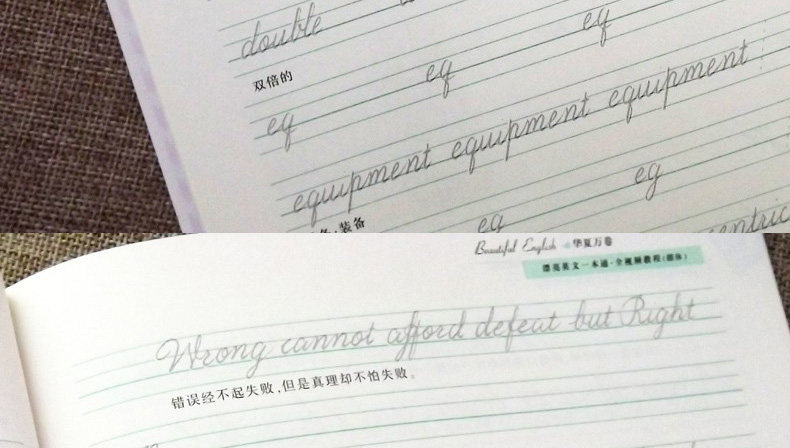 double
双倍的
eq eq eq
equipment equipment equipment
装备
eg eg
Beautiful English 华夏万卷
漂亮英文一本通·全视频教程
Wrong cannot afford defeat but Right
错误经不起失败,但是真理却不怕失败。